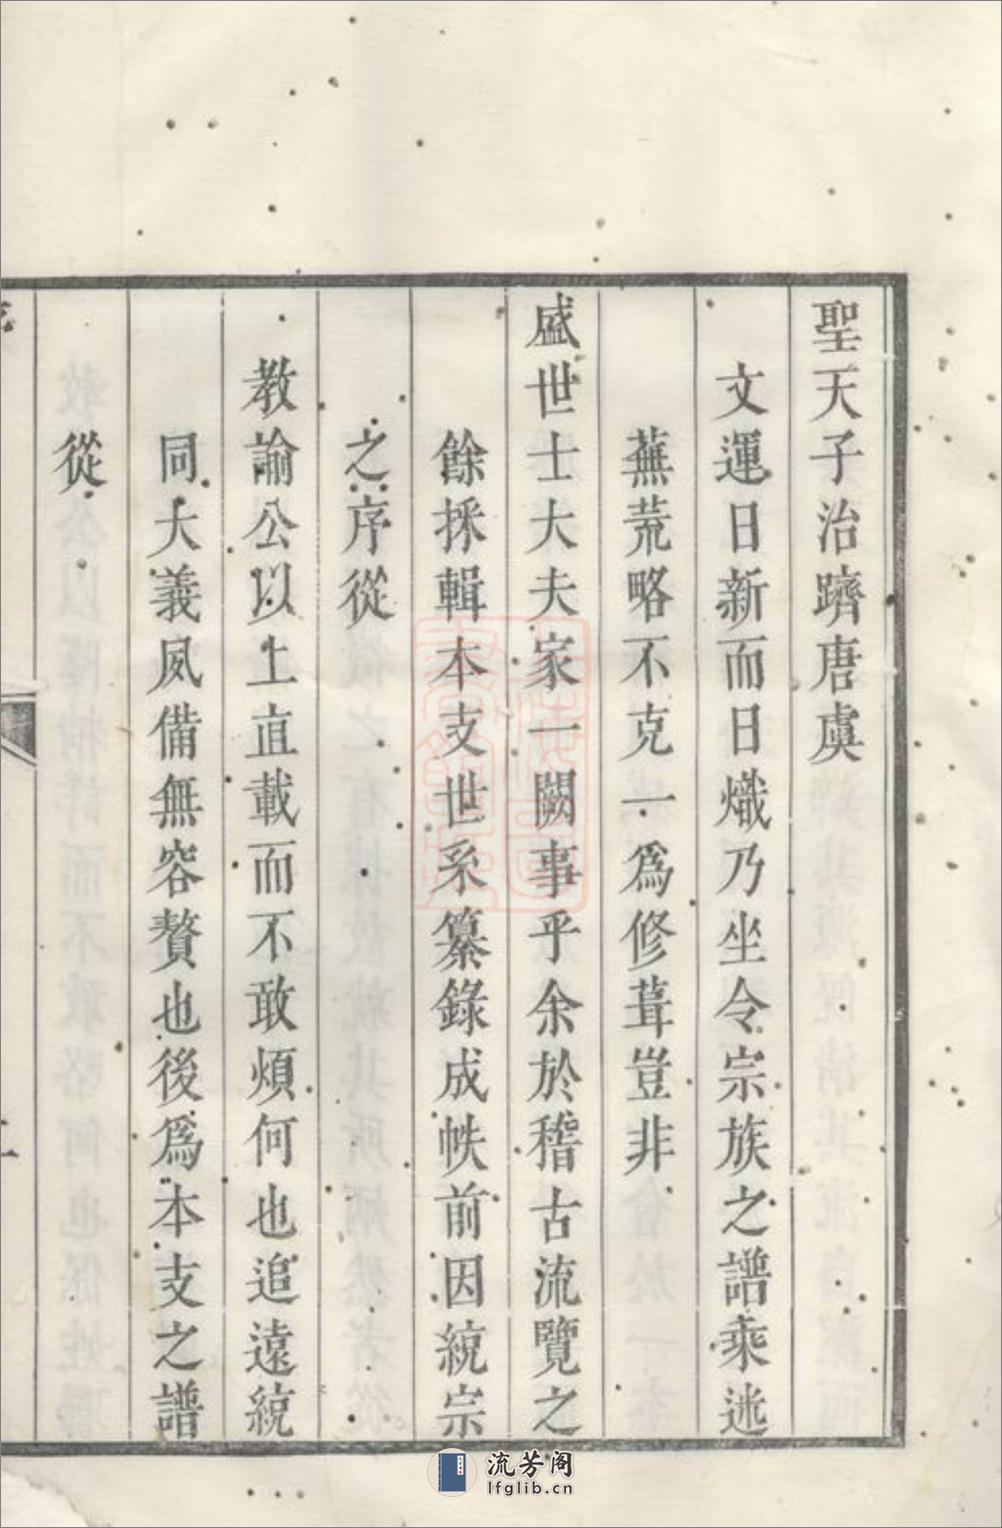 聖天子治躋唐虞
文運日新而日熾乃坐令宗族之譜乘迯
蕪荒略不克一爲修葺豈非
盛世士大夫家一闕事乎余於稽古流覽之
餘採輯本支世系纂錄成帙前因統宗
之序從
教諭公以上直載而不敢煩何也追遠統
同大義咸備無容贅也後爲本支之譜
從
流芳阁
lfglib.cn